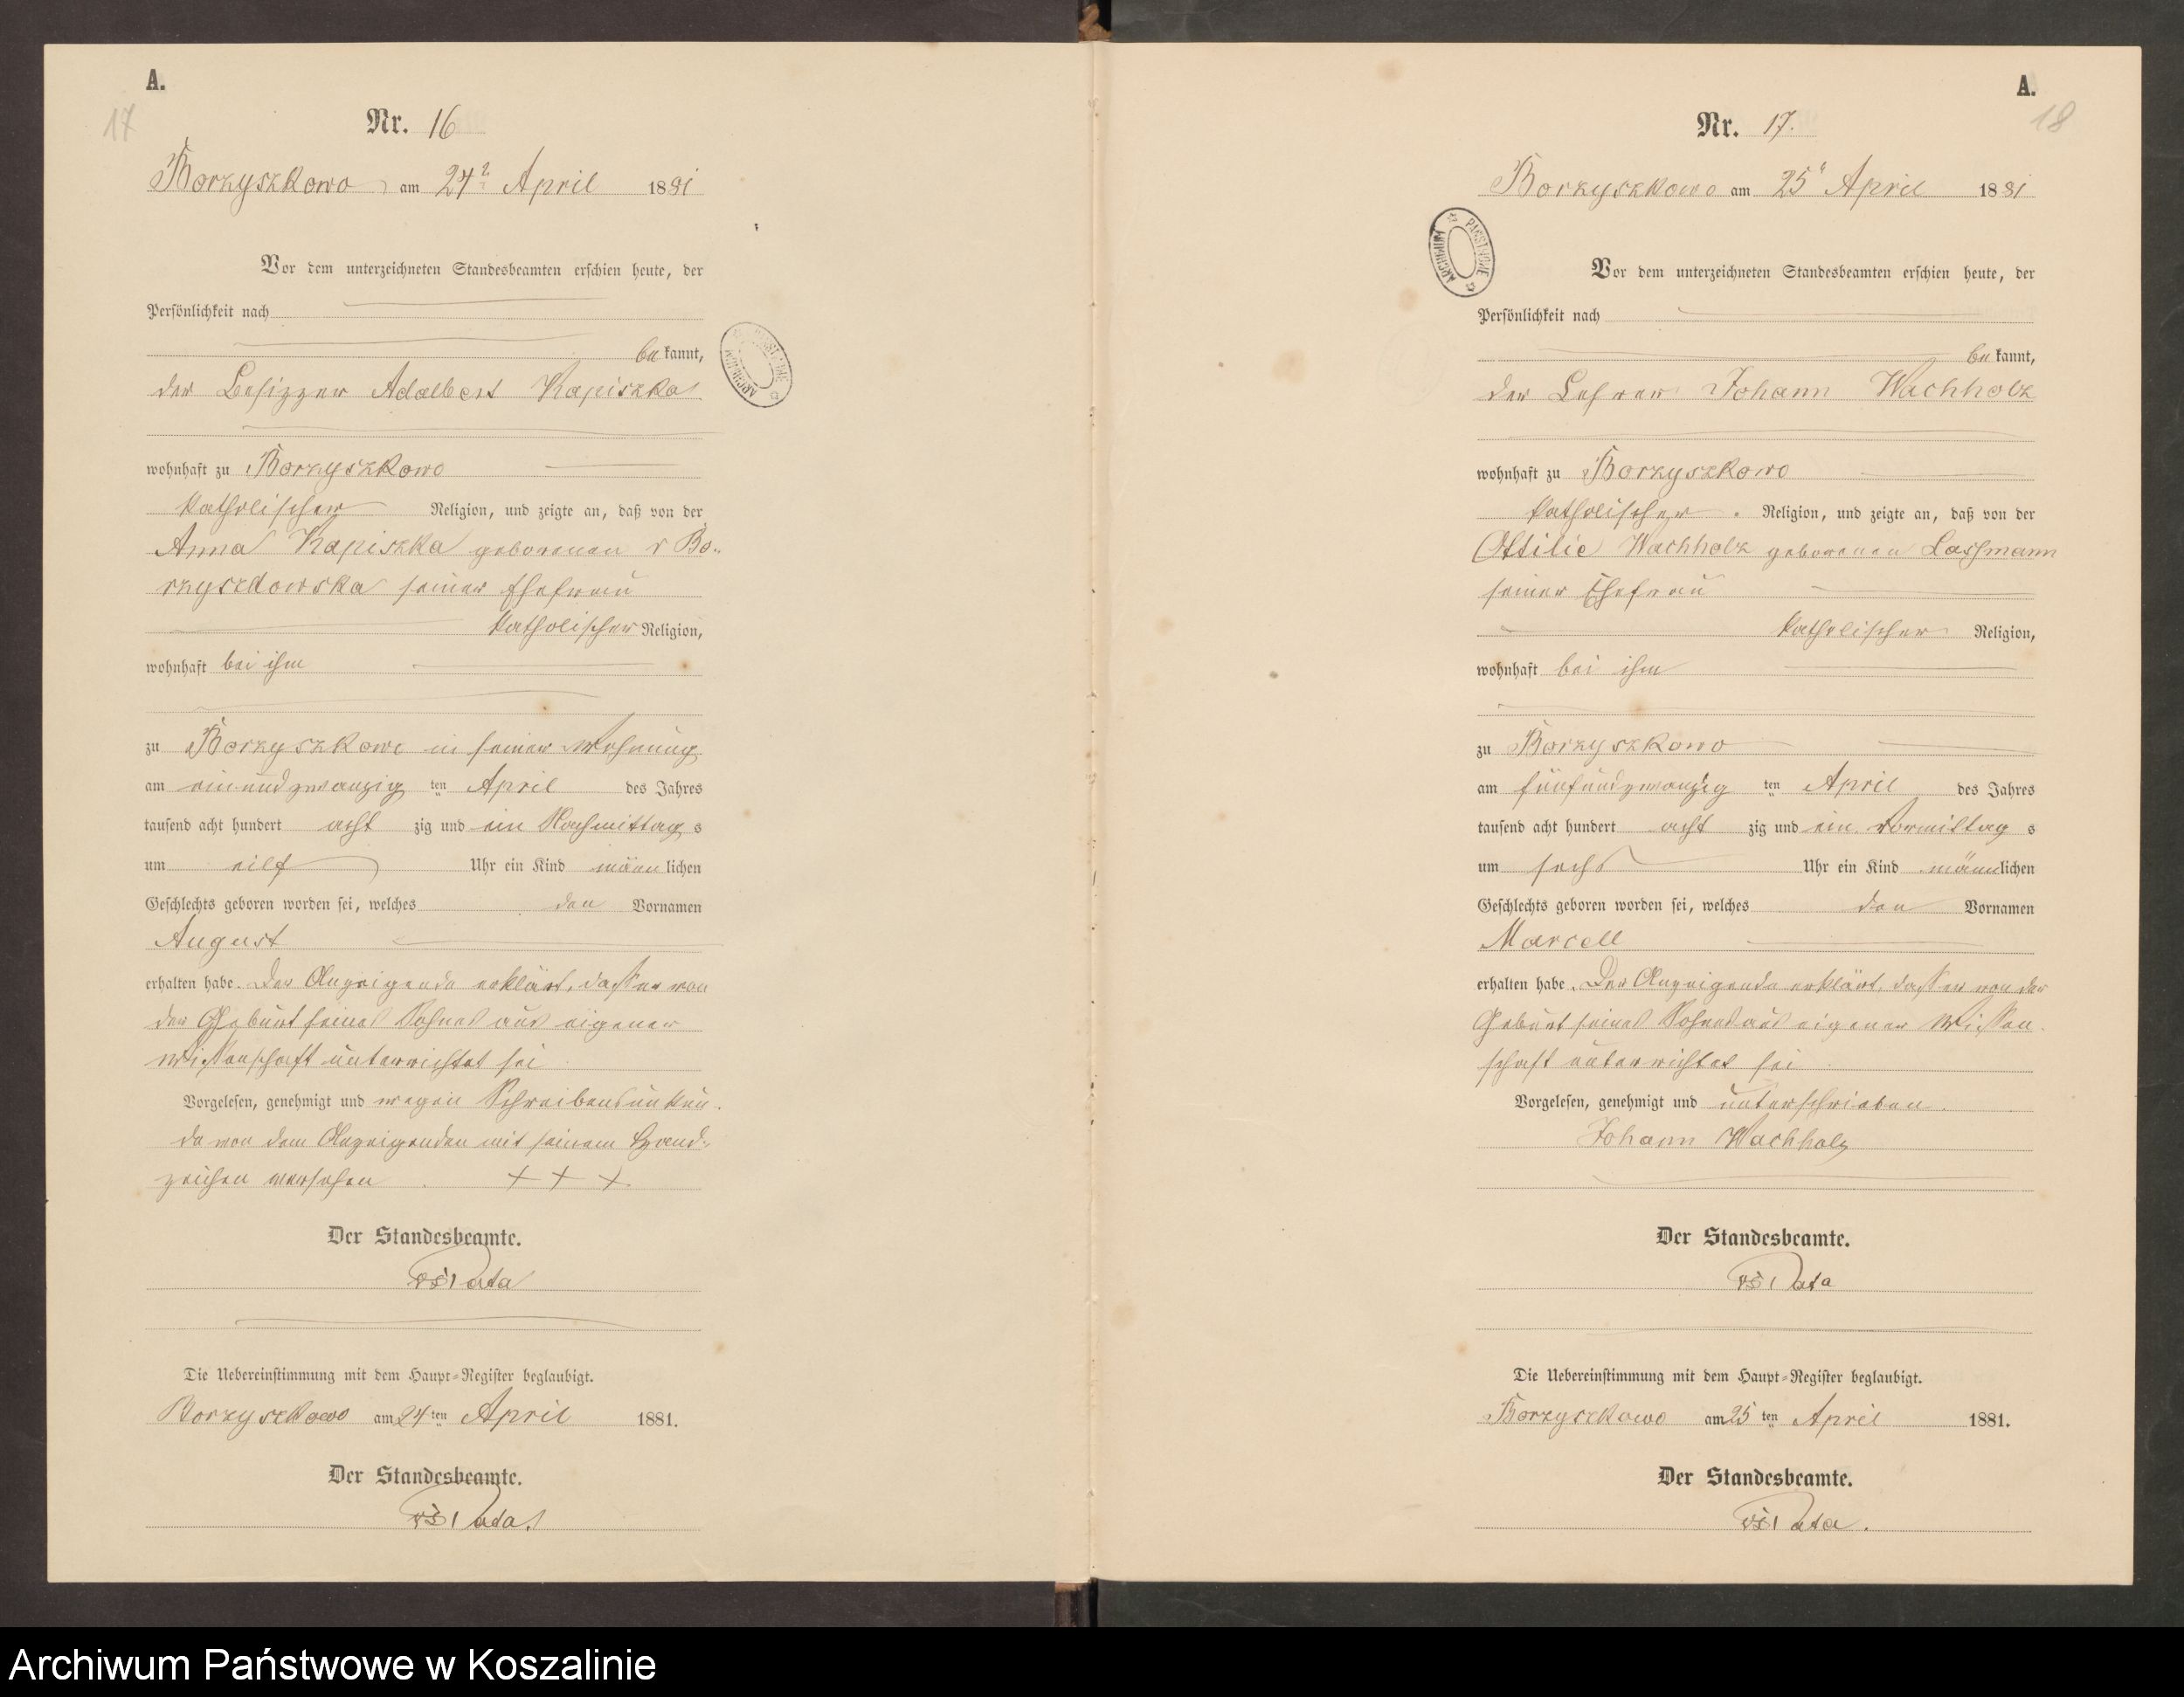 A.
17
Nr. 16
Borzyszkowo am 24 April 1881
Vor dem unterzeichneten Standesbeamten erschien heute, der
Persönlichkeit nach
be kannt,
der Besizzer Adalbert Kapiszka
wohnhaft zu Borzyszkowo
katholischer Religion, und zeigte an, daß von der
Anna Kapiszka geborenen v Bo-
rzyszkowska seiner Ehefrau
katholischer Religion,
wohnhaft bei ihm
zu Borzyszkowo in seiner Wohnung
am einundzwanzig ten April des Jahres
tausend acht hundert acht zig und ein Nachmittag s
um eilf Uhr ein Kind männ lichen
Geschlechts geboren worden sei, welches den Vornamen
August
erhalten habe. Der Anzeigende erklärt, dass er von
der Geburt seines Sohnes aus eigener
Wissenschaft unterrichtet sei
Vorgelesen, genehmigt und wegen Schreibensunkun-
de von dem Anzeigenden mit seinem Hand-
zeichen versehen + + +
Der Standesbeamte.
Die Uebereinstimmung mit dem Haupt-Register beglaubigt.
Borzyszkowo am 24 ten April 1881.
Der Standesbeamte.
A.
18
Nr. 17.
Borzyszkowo am 25 April 1881
ARCHIWUM PAŃSTWOWE
Vor dem unterzeichneten Standesbeamten erschien heute, der
Persönlichkeit nach
be kannt,
der Lehrer Johann Wachholz
wohnhaft zu Borzyszkowo
katholischer Religion, und zeigte an, daß von der
Ottilie Wachholz geborenen Lassmann
seiner Ehefrau
katholischer Religion,
wohnhaft bei ihm
zu Borzyszkowo
am fünfundzwanzig ten April des Jahres
tausend acht hundert acht zig und ein Vormittag s
um sechs Uhr ein Kind männlichen
Geschlechts geboren worden sei, welches den Vornamen
Marcell
erhalten habe. Der Anzeigende erklärt, dass er von der
Geburt seines Sohnes aus eigener Wissen-
schaft unterrichtet sei
Vorgelesen, genehmigt und unterschrieben.
Johann Wachholz
Der Standesbeamte.
Die Uebereinstimmung mit dem Haupt-Register beglaubigt.
Borzyszkowo am 25 ten April 1881.
Der Standesbeamte.
Archiwum Państwowe w Koszalinie